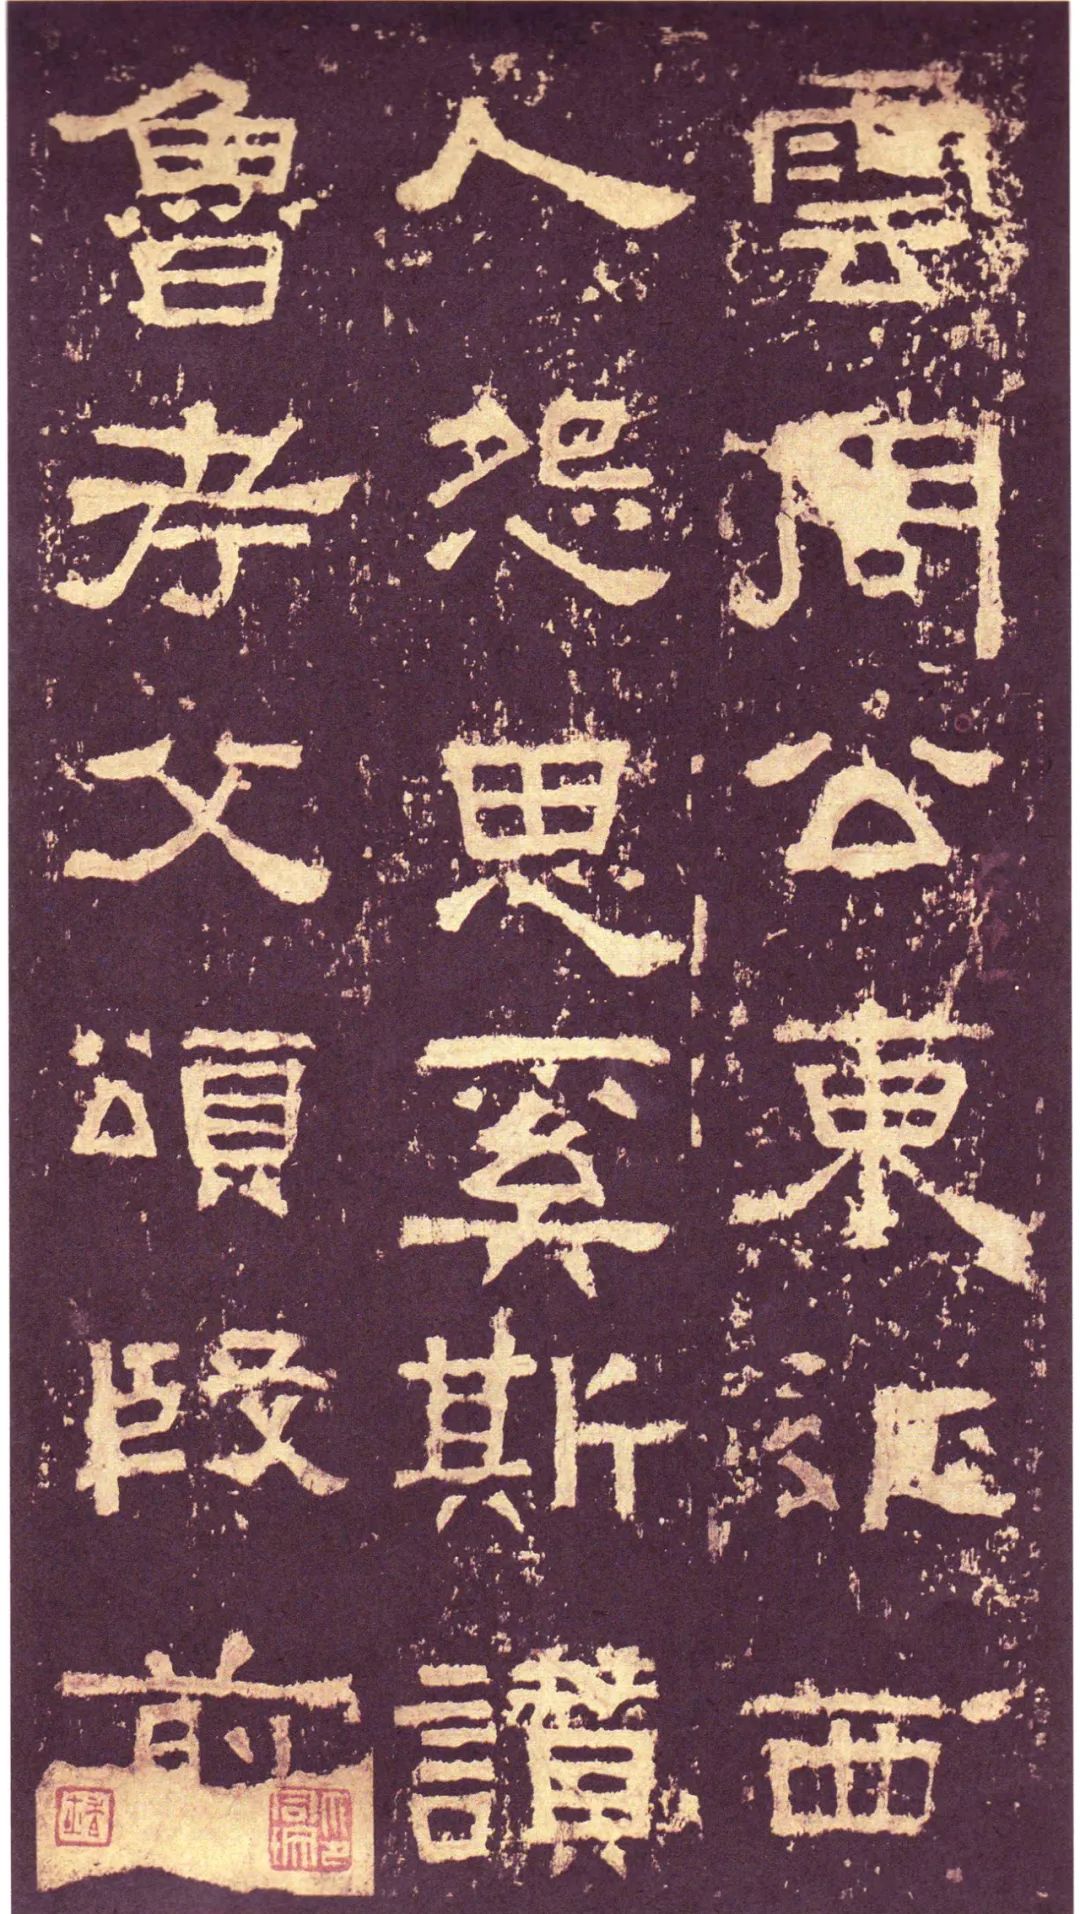 雲周公東征西
人怨思奚斯讚
魯考父頌殷前